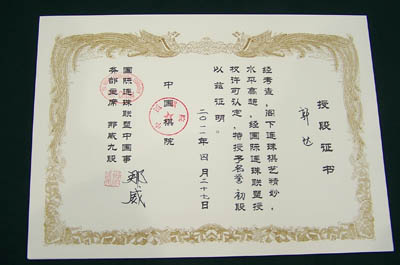 授段证书
郭
经考查，阁下连珠棋艺精妙，
水平高超，经国际连珠联盟授
权许可认定，特授予名誉初段
以兹证明。
二〇一一年四月二十七日
中国棋院
国际连珠联盟中国事
务部主席 那威九段
那威